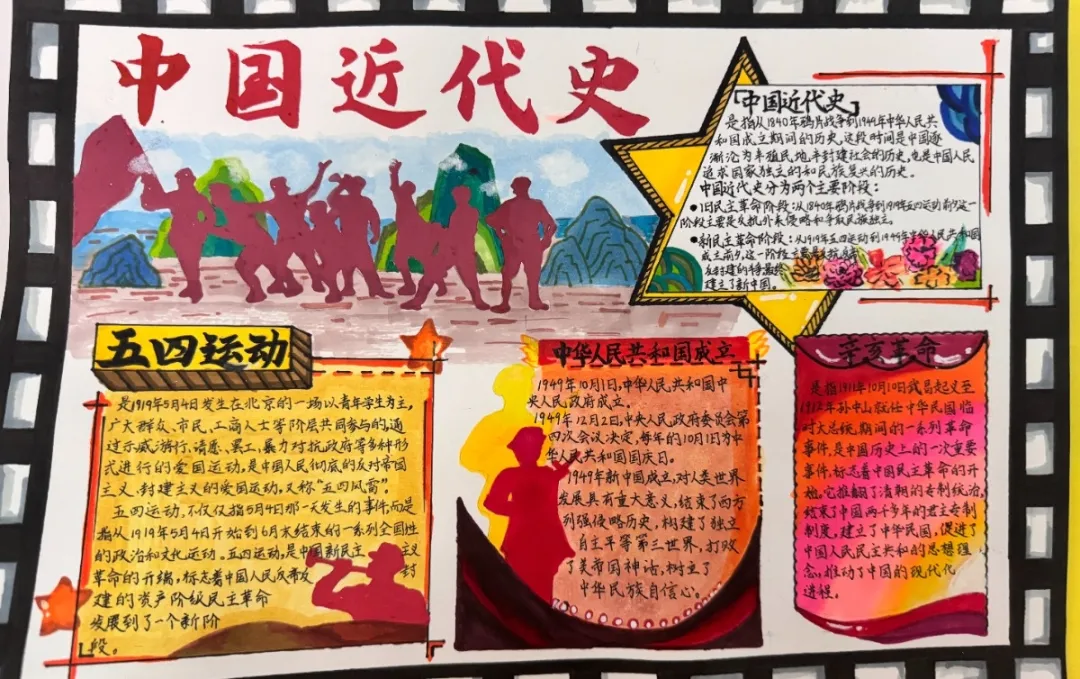 中国近代史
「中国近代史」
是指从1840年鸦片战争到1949年中华人民共
和国成立期间的历史,这段时间是中国逐
渐沦为半殖民地半封建社会的历史,也是中国人民
追求国家独立的和民族复兴的历史。
中国近代史分为两个主要阶段:
•旧民主革命阶段:从1840年鸦片战争到1919年五四运动前夕,这一
阶段主要是反抗外来侵略和争取民族独立。
•新民主革命阶段:从1919年五四运动到1949年中华人民共和国
成立前夕,这一阶段主要是
反封建的
建立了新中国。
五四运动
是1919年5月4日发生在北京的一场以青年学生为主,
广大群众、市民、工商人士等阶层共同参与的,通
过示威游行、请愿、罢工、暴力对抗政府等多种形
式进行的爱国运动,是中国人民彻底的反对帝国
主义、封建主义的爱国运动,又称“五四风雷”。
五四运动,不仅仅指5月4日那一天发生的事件,而是
指从1919年5月4日开始到6月末结束的一系列全国性
的政治和文化运动。五四运动,是中国新民主 主义
革命的开端,标志着中国人民反帝反 封
建的资产阶级民主革命
发展到了一个新阶
段。
中华人民共和国成立
1949年10月1日,中华人民共和国中
央人民政府成立。
1949年12月2日,中央人民政府委员会第
四次会议决定,每年的10月1日为中
华人民共和国国庆日。
1949年新中国成立,对人类世界
发展具有重大意义,结束了西方
列强侵略历史,构建了独立
自主平等第三世界,打败
了美帝国神话,树立了
中华民族自信心。
辛亥革命
是指1911年10月10日武昌起义至
1912年孙中山就任中华民国临
时大总统期间的一系列革命
事件,是中国历史上的一次重要
事件,标志着中国民主革命的开
始。它推翻了清朝的专制统治,
结束了中国两千多年的君主专制
制度,建立了中华民国,促进了
中国人民民主共和的思想理
念,推动了中国的现代化
进程。